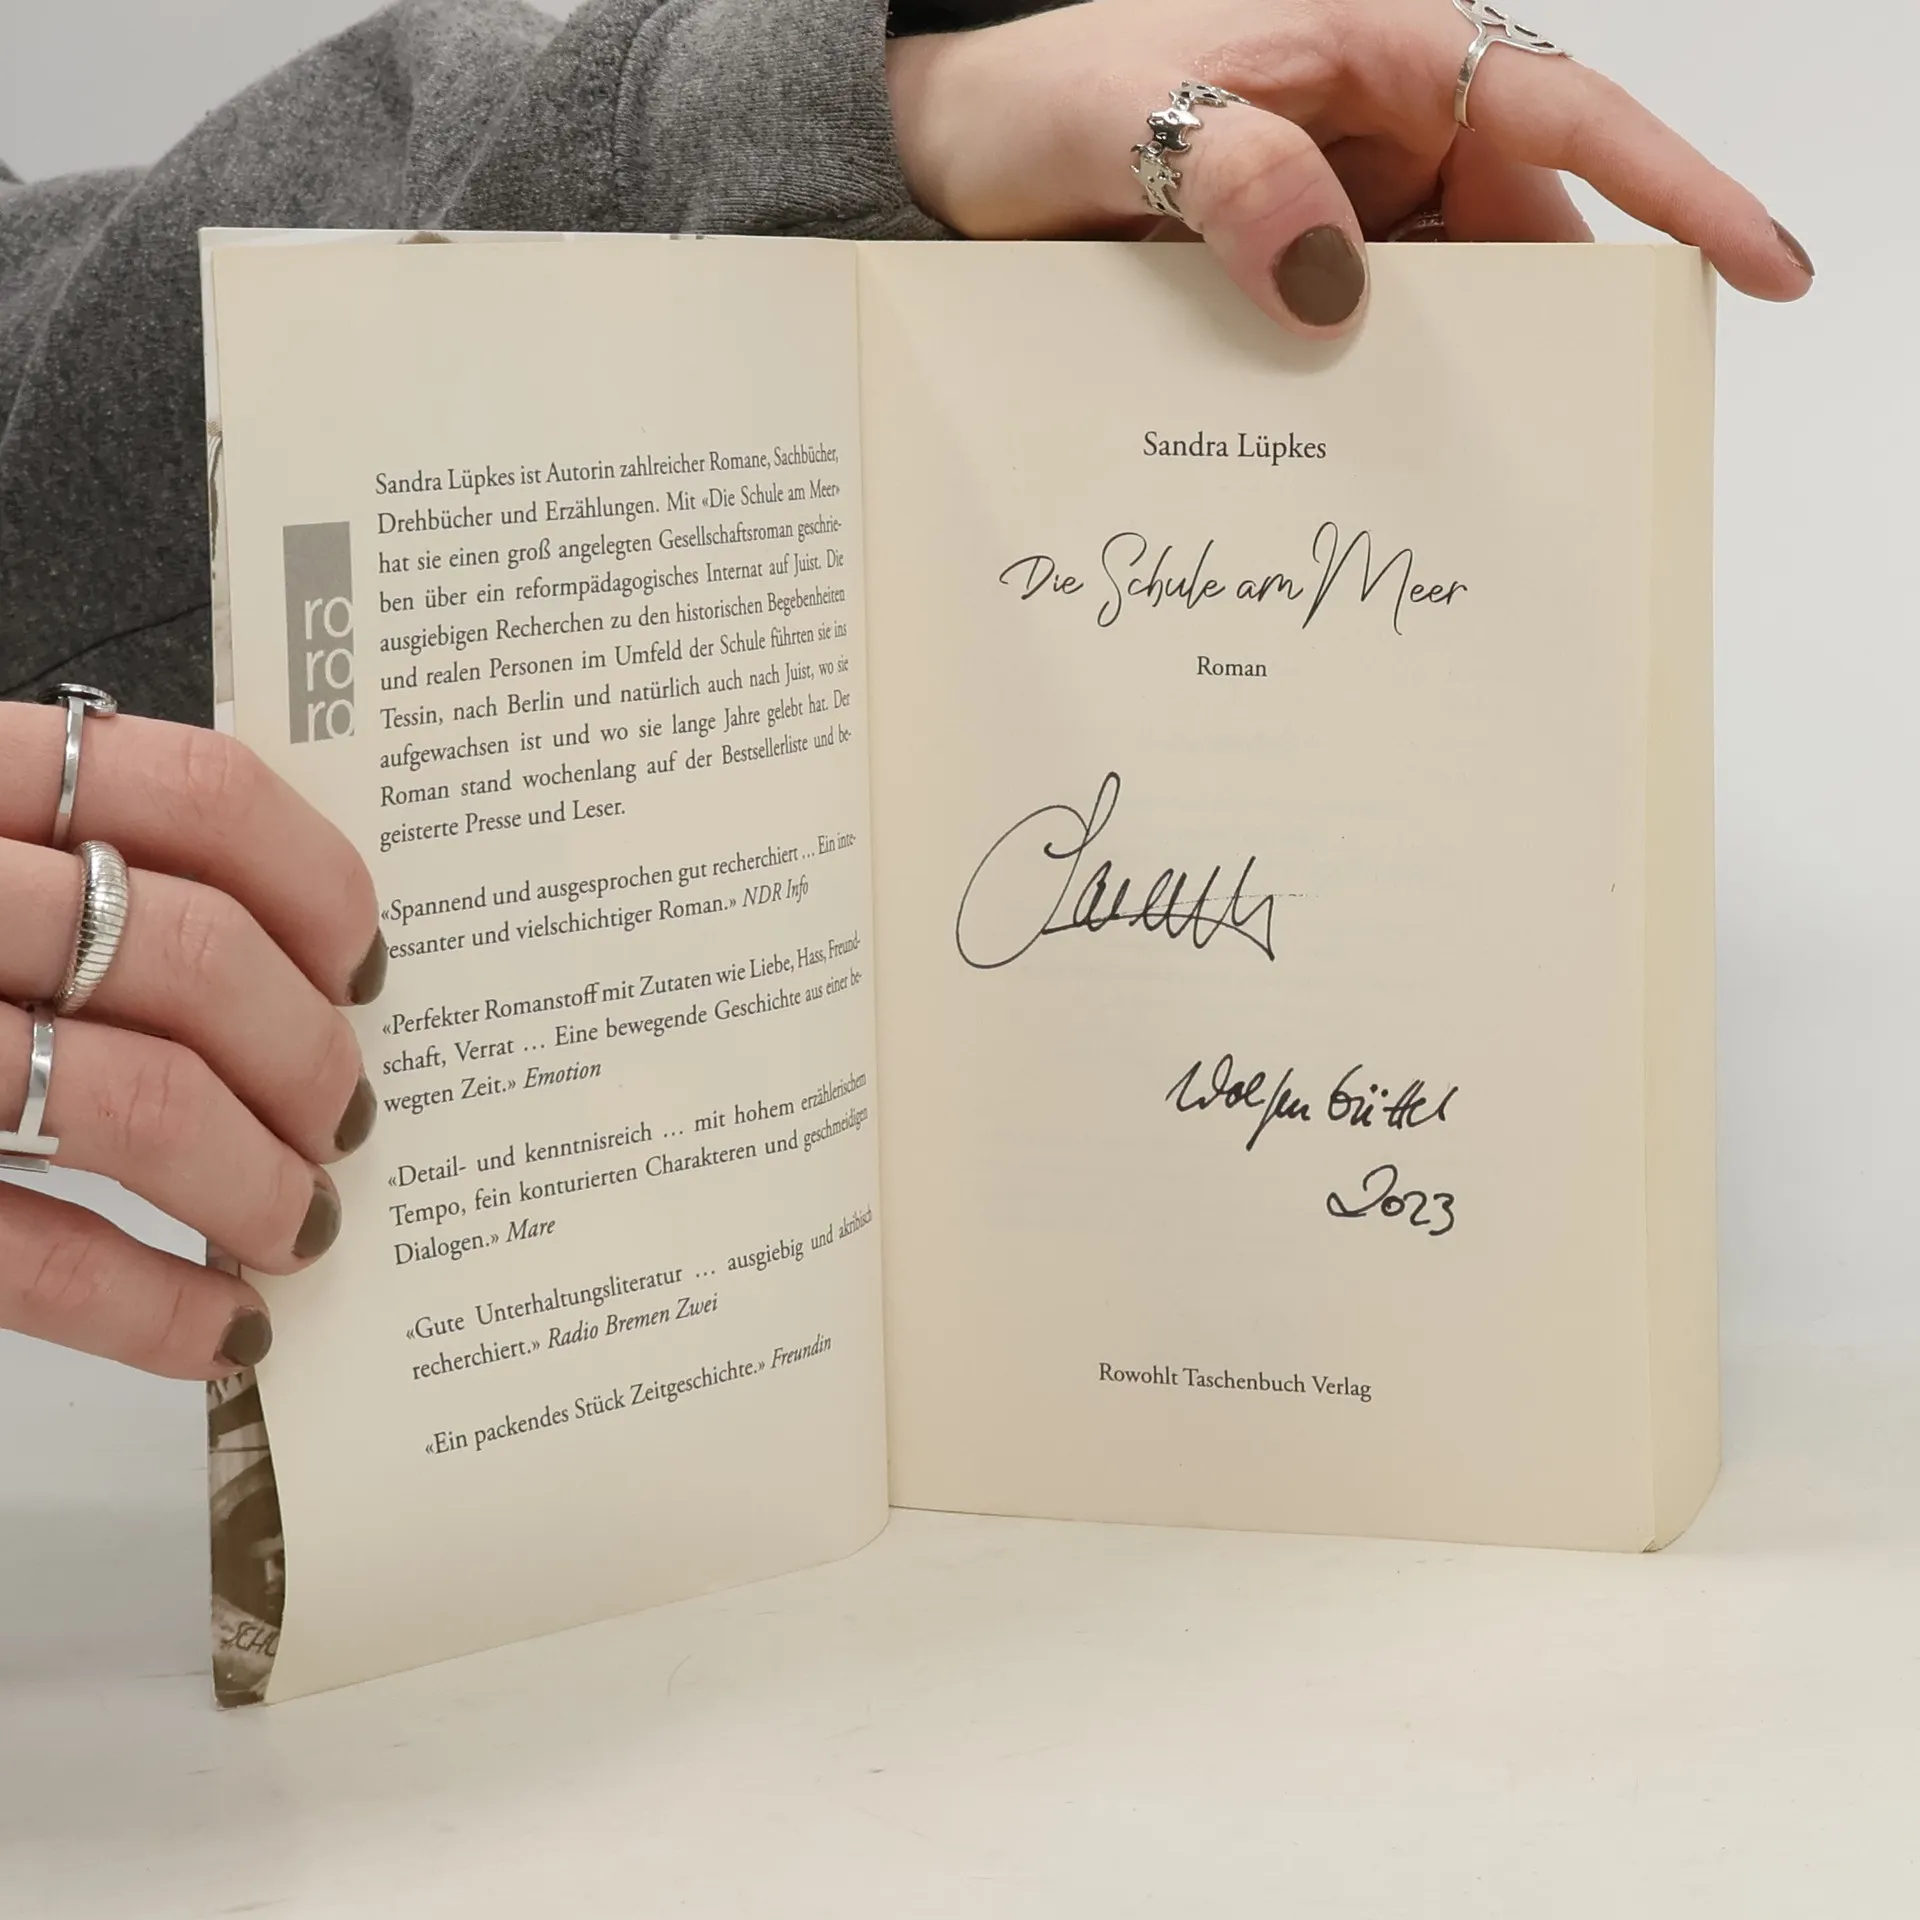 ro
ro
ro
Sandra Lüpkes ist Autorin zahlreicher Romane, Sachbücher,
Drehbücher und Erzählungen. Mit «Die Schule am Meer»
hat sie einen groß angelegten Gesellschaftsroman geschrie-
ben über ein reformpädagogisches Internat auf Juist. Die
ausgiebigen Recherchen zu den historischen Begebenheiten
und realen Personen im Umfeld der Schule führten sie ins
Tessin, nach Berlin und natürlich auch nach Juist, wo sie
aufgewachsen ist und wo sie lange Jahre gelebt hat. Der
Roman stand wochenlang auf der Bestsellerliste und be-
geisterte Presse und Leser.
«Spannend und ausgesprochen gut recherchiert ... Ein inte-
ressanter und vielschichtiger Roman.» NDR Info
«Perfekter Romanstoff mit Zutaten wie Liebe, Hass, Freund-
schaft, Verrat ... Eine bewegende Geschichte aus einer be-
wegten Zeit.» Emotion
«Detail- und kenntnisreich ... mit hohem erzählerischem
Tempo, fein konturierten Charakteren und geschmeidigen
Dialogen.» Mare
«Gute Unterhaltungsliteratur ... ausgiebig und akribisch
recherchiert.» Radio Bremen Zwei
«Ein packendes Stück Zeitgeschichte.» Freundin
SCHU
Sandra Lüpkes
Die Schule am Meer
Roman
Wolfenbüttel
2023
Rowohlt Taschenbuch Verlag